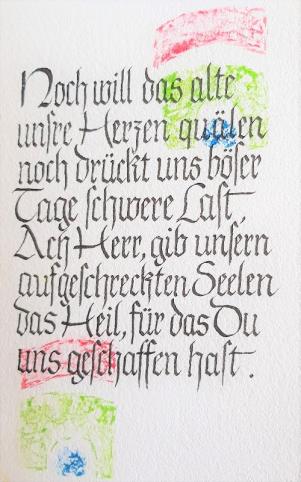 Noch will das alte
unsre Herzen quälen
noch drückt uns böser
Tage schwere Last,
Ach Herr, gib unsern
aufgeschreckten Seelen
das Heil, für das Du
uns geschaffen hast.